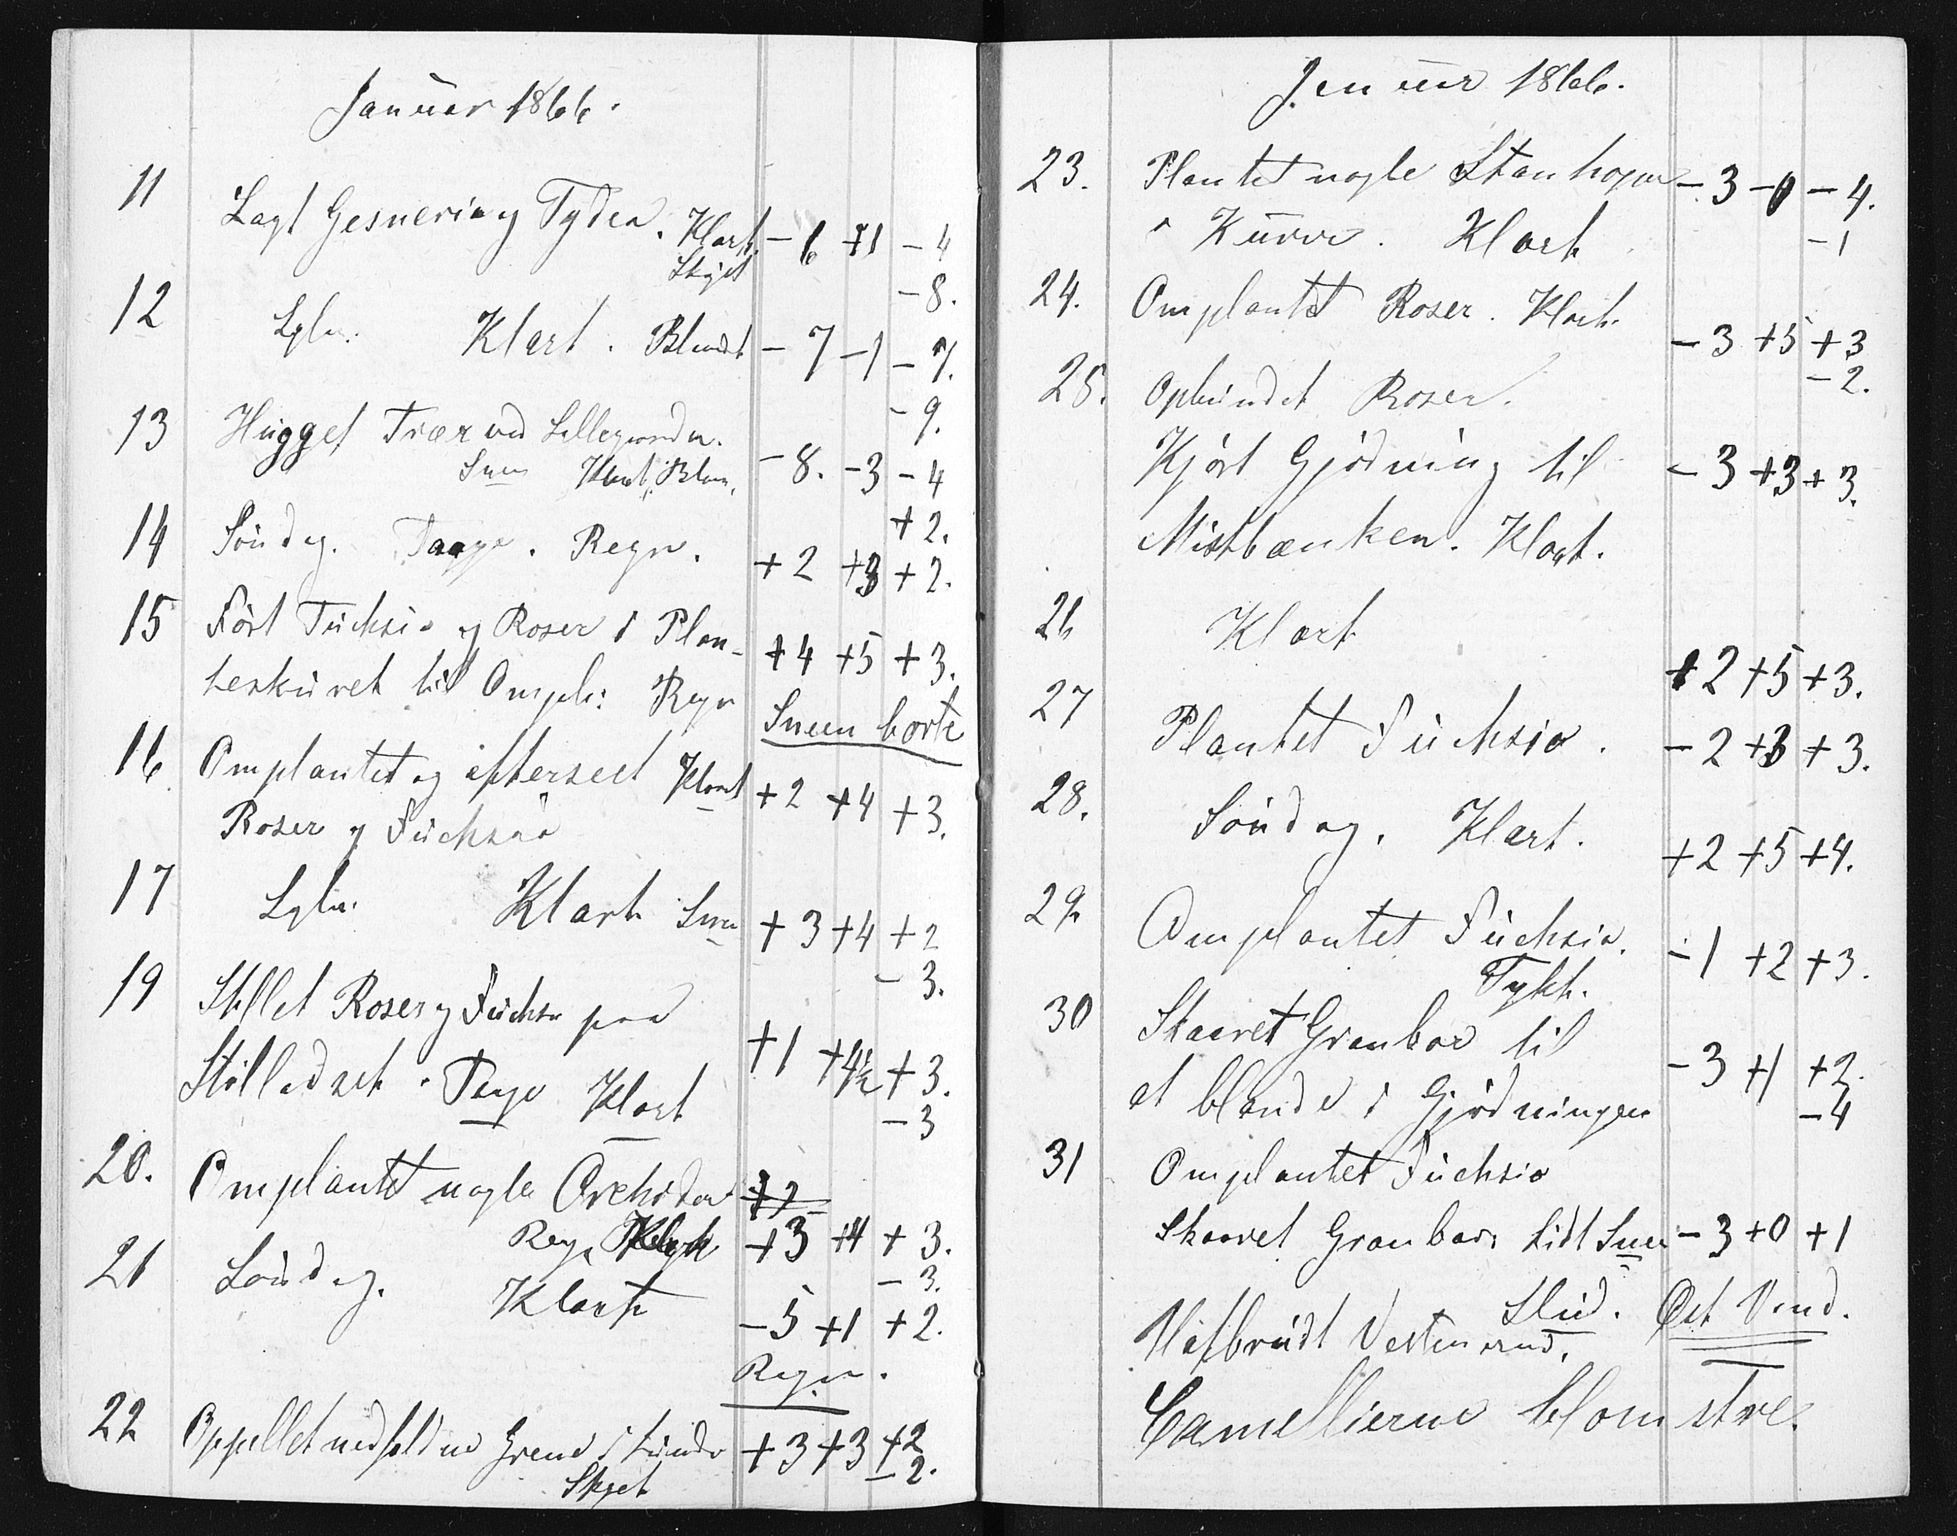 Januar 1866.
11 Lagt Gesneria og Tydea. Klart. - 6 +1 - 4
Skyet - 8.
12 Lgln. Klart. Blæst - 7 - 1 - 7.
- 9.
13 Hugget Træer ved Lillegrarden.
Snee Klart, Blæst, - 8. - 3 - 4
+ 2.
14 Söndag. Taage. Regn. + 2 +3 + 2.
15 Fört Fuchsia og Roser i Plan-
teskuret til Ompl: Regn +4 +5 + 3.
Sneen borte
16 Omplantet og efterseet Klart + 2 +4 + 3.
Roser og Fuchsia
17 Lgln. Klart Snee + 3 +4 + 2
- 3.
19 Stillet Roser og Fuchsia paa
Stilladset. Taage Klart +1 +4½ + 3.
- 3
20. Omplantet nogle Orchideer
Regn, Klart +3 +4 + 3.
- 3.
21 Söndag. Klart - 5 +1 +2.
Regn.
22 Oppillet nedfaldne Grene i Lunden + 3 +3 +2
Skyet - 2.
Januar 1866.
23. Plantet nogle Stanhopea - 3 - 0 - 4.
i Kurve. Klart - 1
24. Omplantet Roser. Klart. - 3 +5 +3
- 2.
25. Opbundet Roser.
Kjört Gjödning til - 3 +3 + 3.
Mistbænken. Klart.
26 Klart +2 +5 +3.
27 Plantet Fuchsia. - 2 +3 + 3.
28. Söndag. Klart. +2 +5 +4.
29. Omplantet Fuchsia. - 1 +2 +3.
Tykt.
30 Skaaret Granbar til - 3 +1 +2.
at blande i Gjödningen - 4
31 Omplantet Fuchsia
Skaaret Granbar. Lidt Snee - 3 +0 +1
Slud. Öst Vind.
Uafbrudt Vestenvind.
Camellierne blomstre.